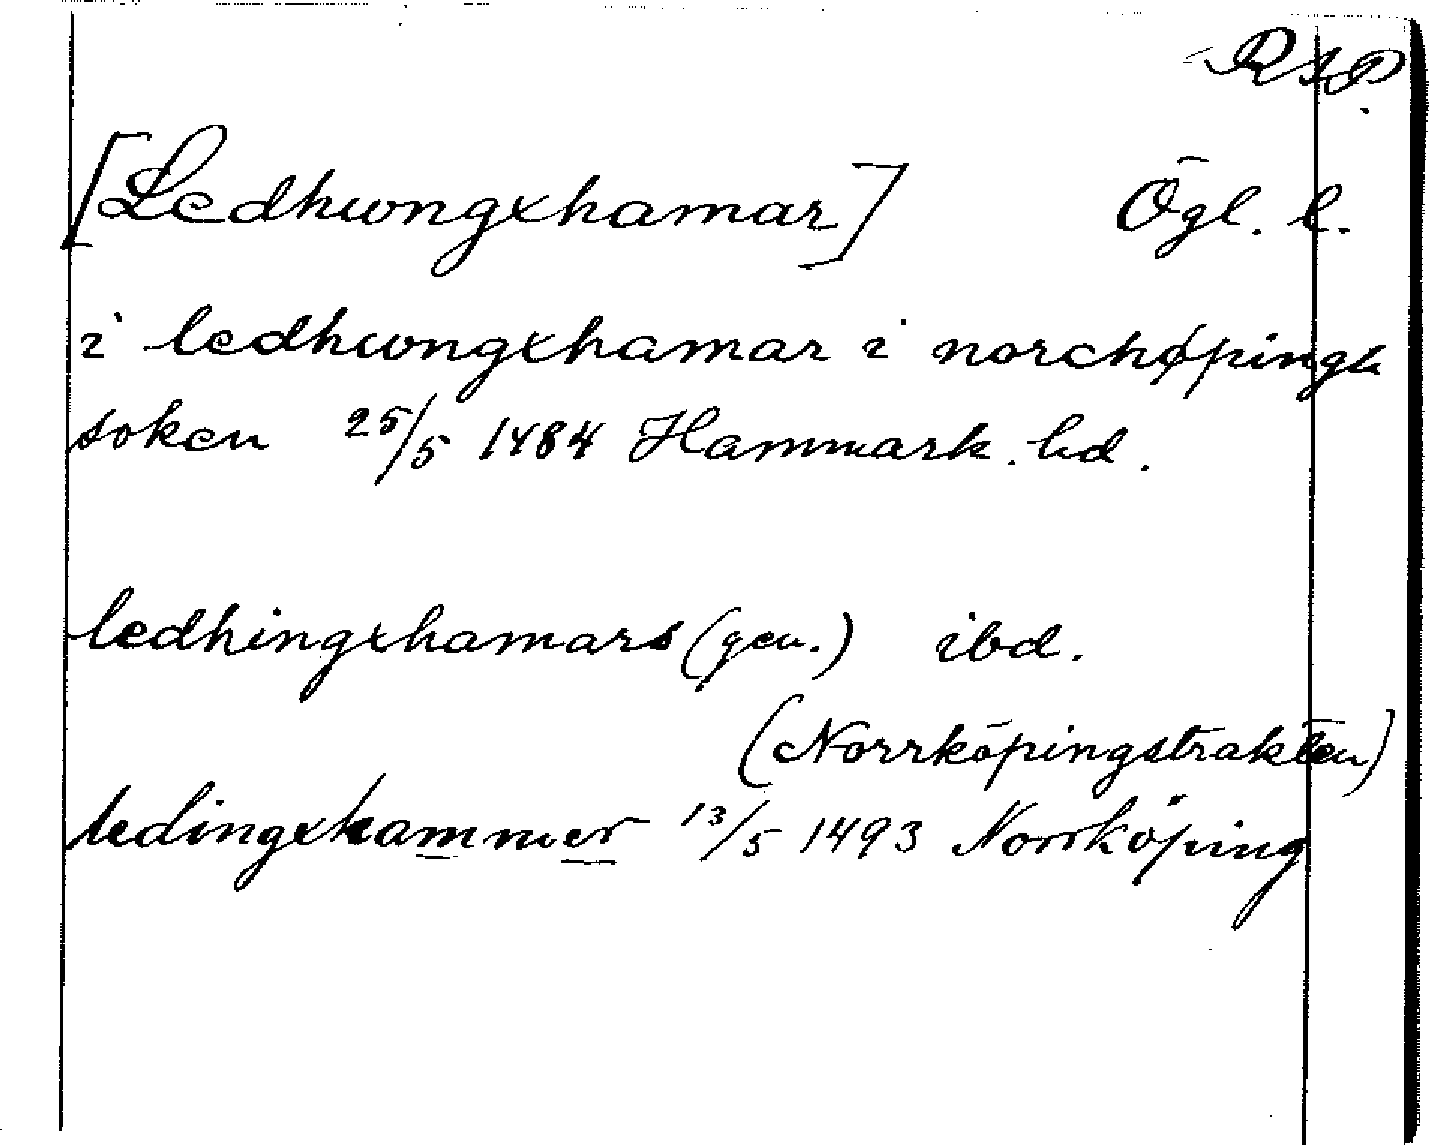 RAP.
[Ledhwngxhamar] Ögl. l.
i ledhwngxhamar i norchøpingx
soken 25/5 1484 Hammark. hd.
ledhingxhamars (gen.) ibd.
(Norrköpingstrakten)
ledingxhammer 13/5 1493 Norrköping